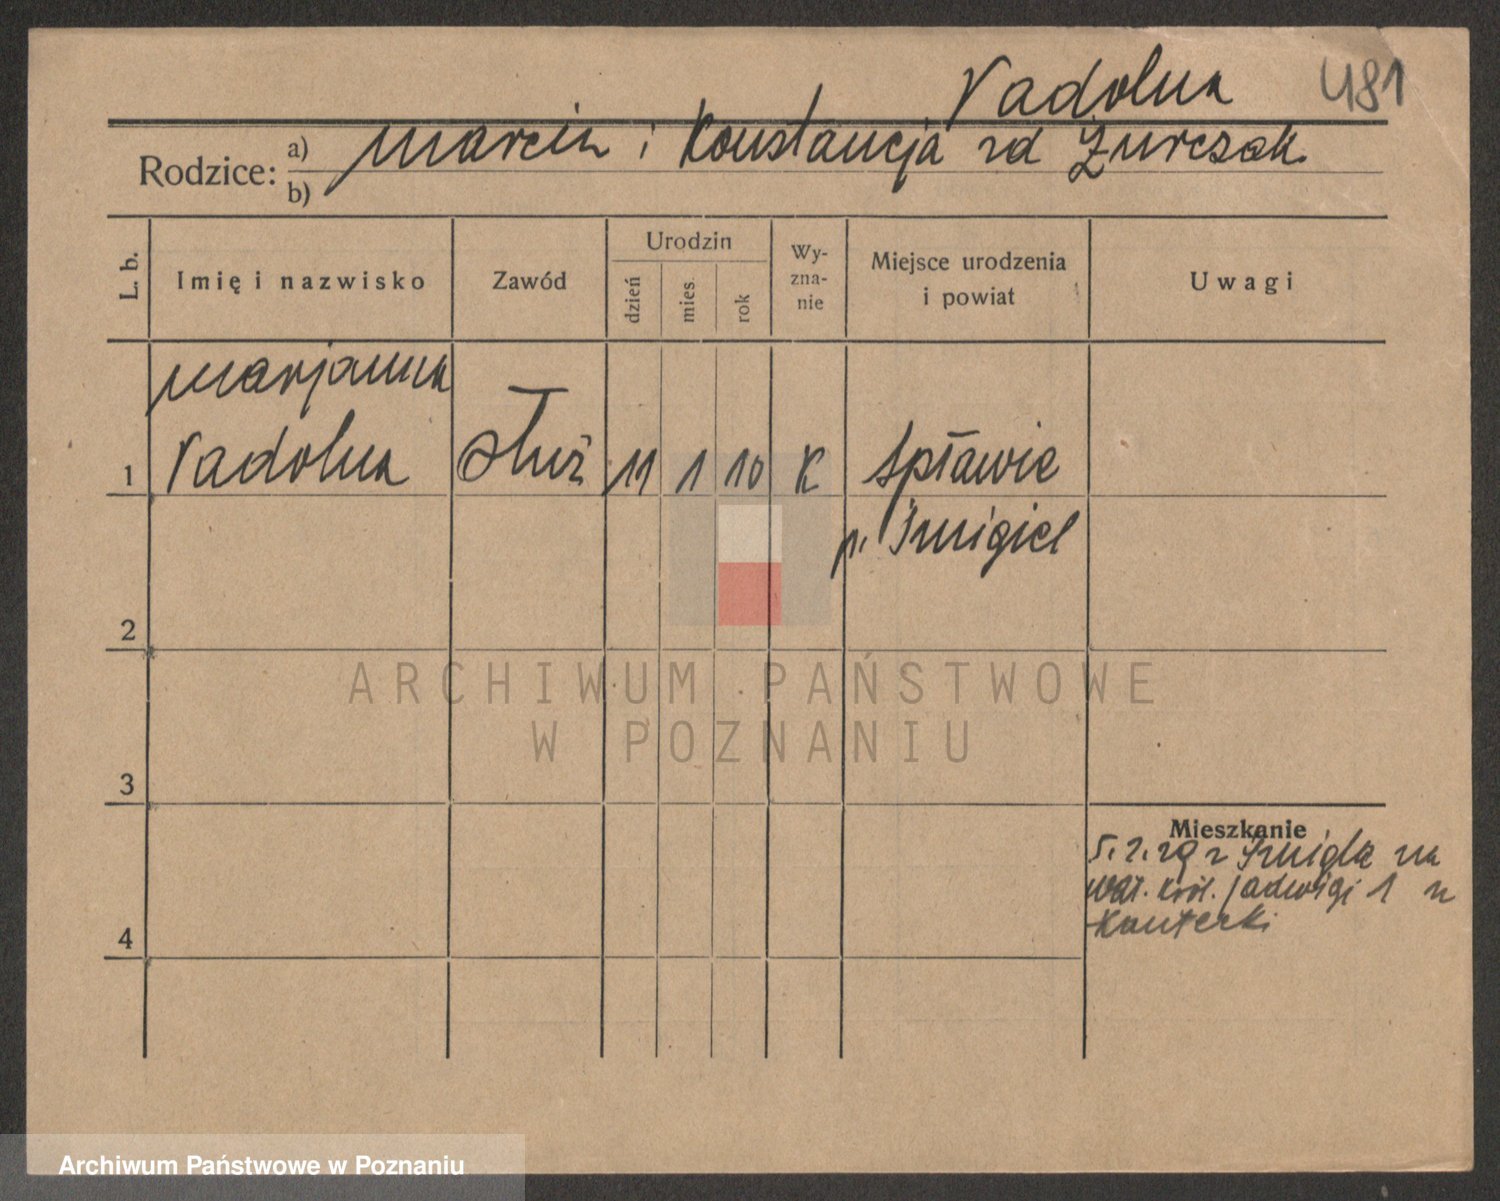 Radolna 481
Rodzice: a) Marcin i Konstancja zd Żurczak
b)
L. b.
Imię i nazwisko
Zawód
Urodzin
dzień
mies.
rok
Wy-
zna-
nie
Miejsce urodzenia
i powiat
Uwagi
Marjanna
1 Radolna służ 11 1 10 K Spławie
p. Śmigiel
2
ARCHIWUM PAŃSTWOWE
W POZNANIU
3
Mieszkanie
5.2.29 z Śmigla na
wał. król. Jadwigi 1 u
Kanterki
4
Archiwum Państwowe w Poznaniu